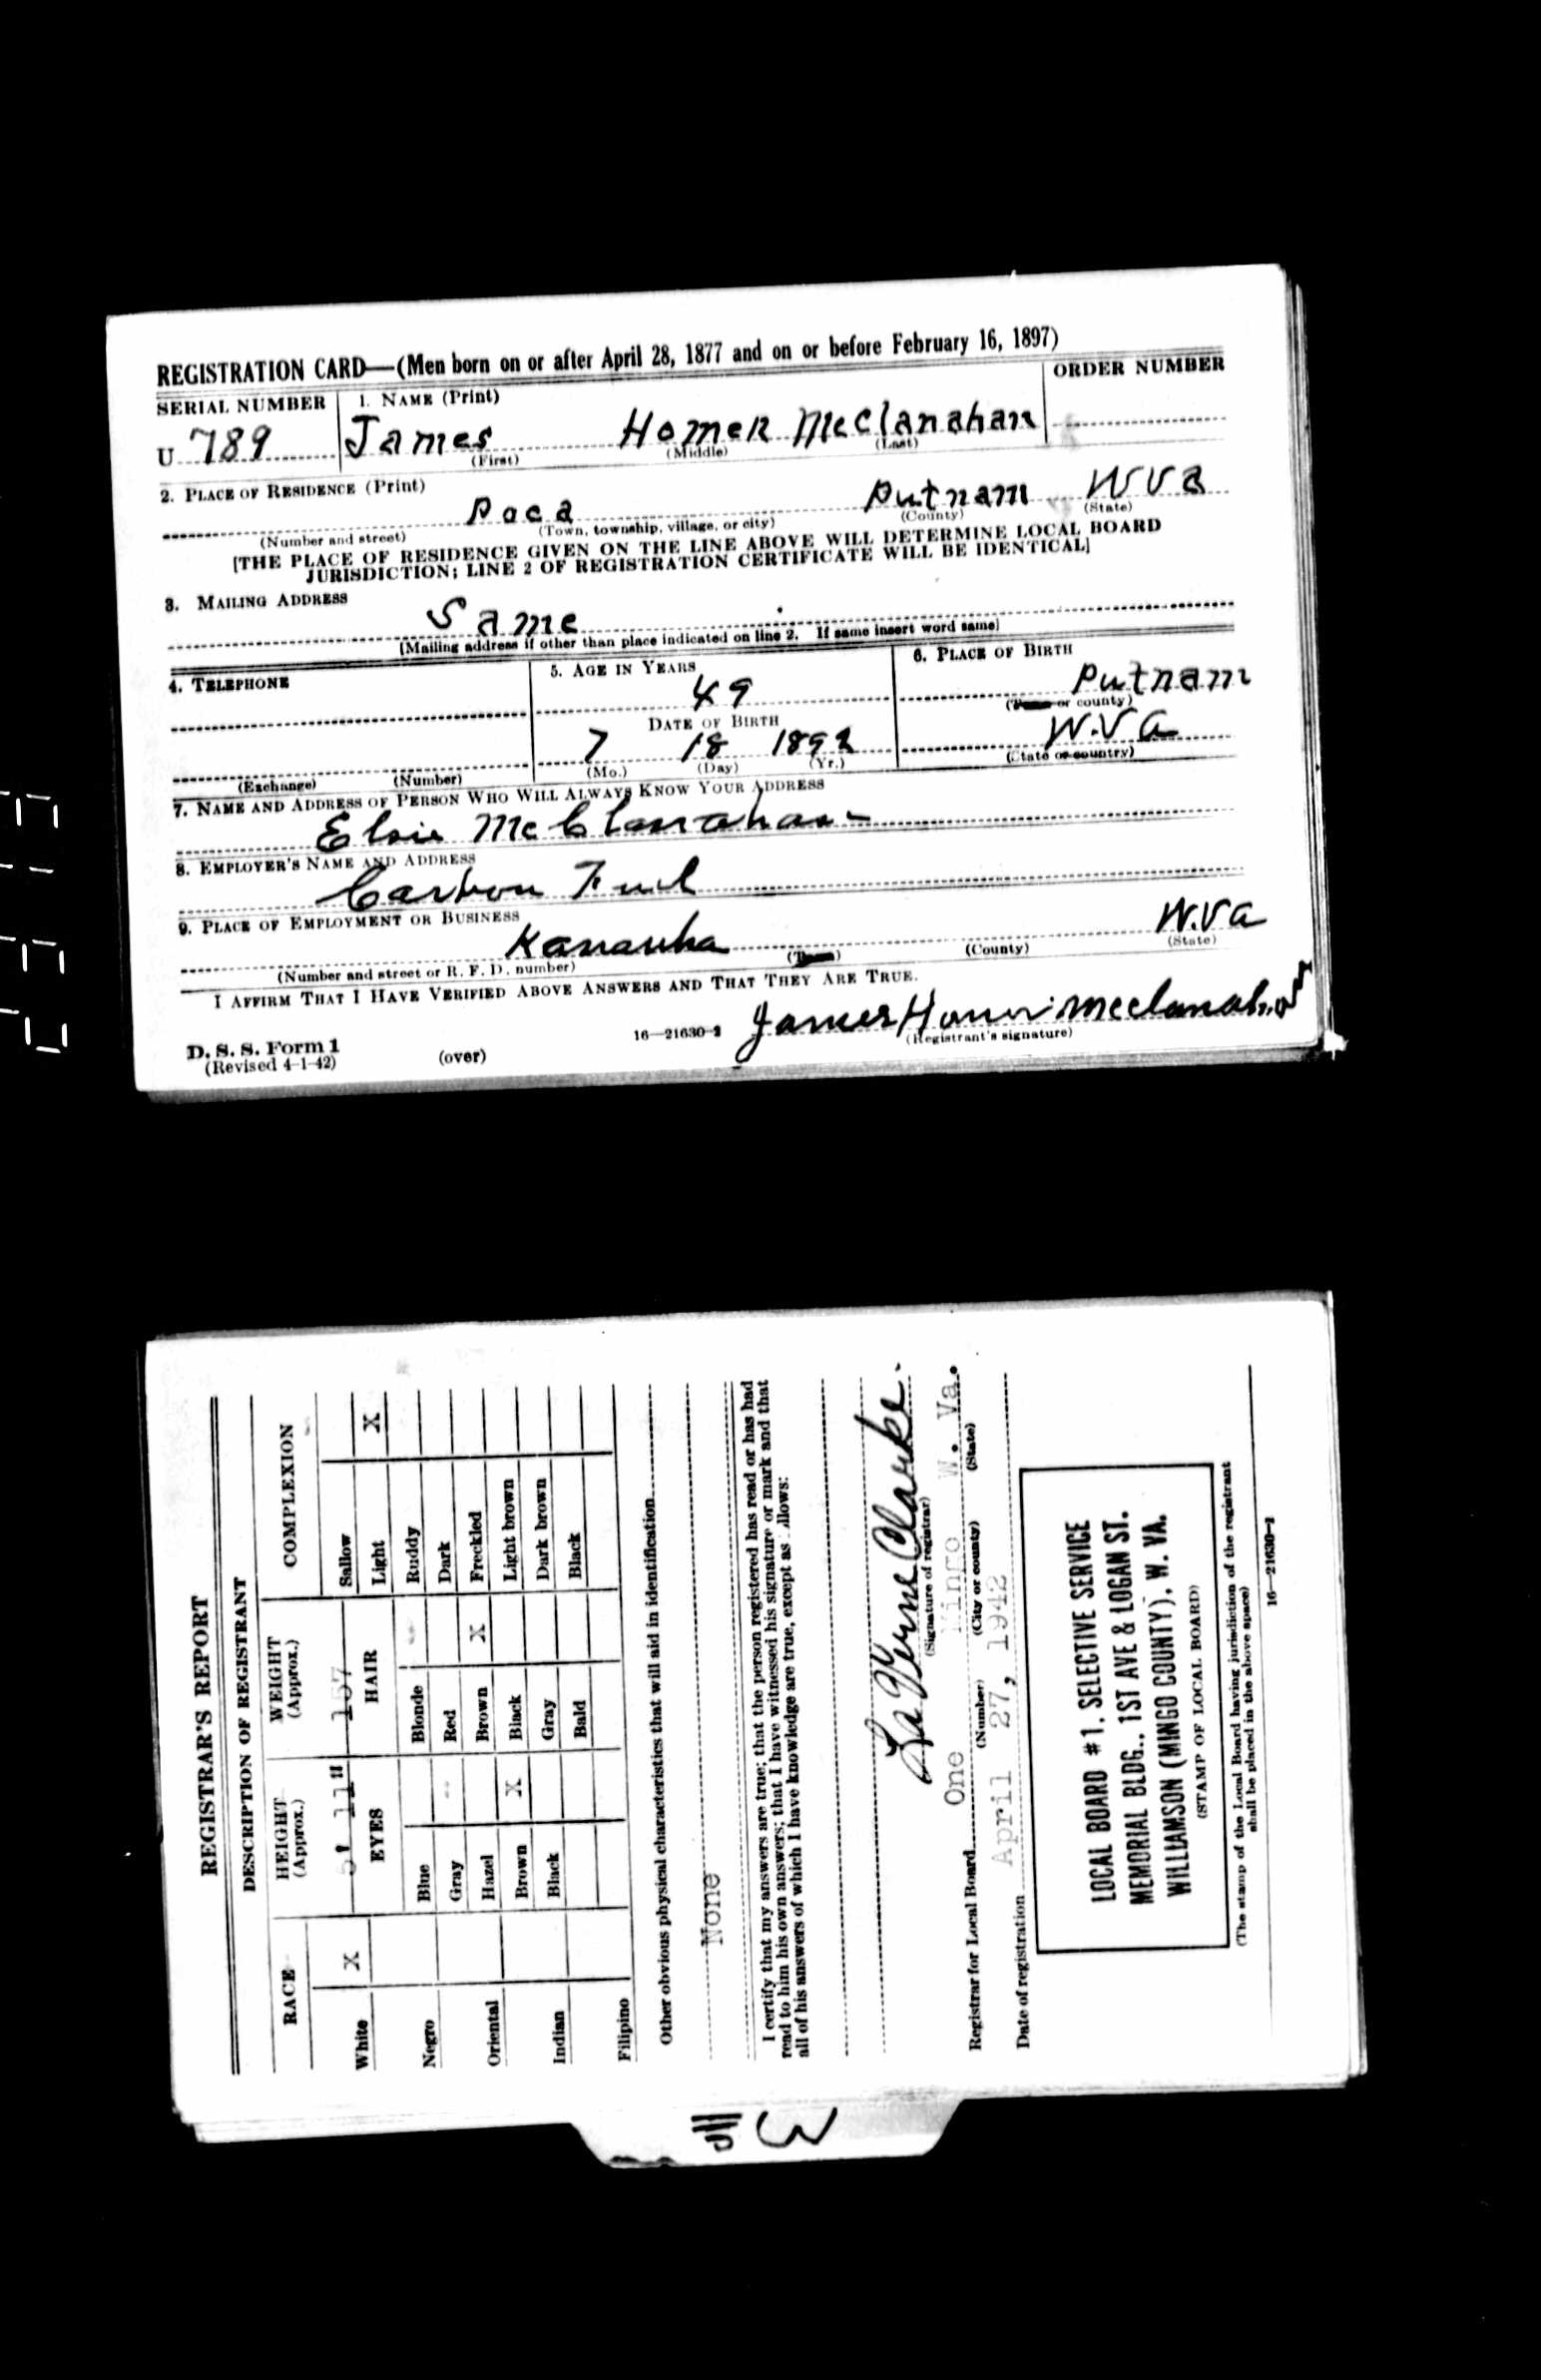 REGISTRATION CARD—(Men born on or after April 28, 1877 and on or before February 16, 1897)
SERIAL NUMBER 1. NAME (Print) ORDER NUMBER
U 789 James Homer McClanahan
(First) (Middle) (Last)
2. PLACE OF RESIDENCE (Print)
Poca Putnam W Va
(Number and street) (Town, township, village, or city) (County) (State)
[THE PLACE OF RESIDENCE GIVEN ON THE LINE ABOVE WILL DETERMINE LOCAL BOARD
JURISDICTION; LINE 2 OF REGISTRATION CERTIFICATE WILL BE IDENTICAL]
3. MAILING ADDRESS
Same
[Mailing address if other than place indicated on line 2. If same insert word same]
4. TELEPHONE 5. AGE IN YEARS 6. PLACE OF BIRTH
49 Putnam
DATE OF BIRTH (Town or county)
7 18 1892 W.Va
(Exchange) (Number) (Mo.) (Day) (Yr.) (State or country)
7. NAME AND ADDRESS OF PERSON WHO WILL ALWAYS KNOW YOUR ADDRESS
Elsie McClanahan
8. EMPLOYER'S NAME AND ADDRESS
Carbon Fuel
9. PLACE OF EMPLOYMENT OR BUSINESS
Kanawha W.Va
(Number and street or R. F. D. number) (Town) (County) (State)
I AFFIRM THAT I HAVE VERIFIED ABOVE ANSWERS AND THAT THEY ARE TRUE.
James Homer McClanahan
D. S. S. Form 1 16—21630-2 (Registrant's signature)
(Revised 4-1-42) (over)
REGISTRAR'S REPORT
DESCRIPTION OF REGISTRANT
RACE HEIGHT (Approx.) WEIGHT (Approx.) COMPLEXION
5' 11" 157
White X EYES HAIR Sallow
Light X
Negro Blue Blonde Ruddy
Gray Red Dark
Oriental Hazel Brown X Freckled
Brown X Black Light brown
Indian Black Gray Dark brown
Bald Black
Filipino
Other obvious physical characteristics that will aid in identification
None
I certify that my answers are true; that the person registered has read or has had
read to him his own answers; that I have witnessed his signature or mark and that
all of his answers of which I have knowledge are true, except as
La Verne Clarke.
(Signature of registrar)
Registrar for Local Board One Mingo W. Va.
(Number) (City or county) (State)
Date of registration April 27, 1942
LOCAL BOARD #1, SELECTIVE SERVICE
MEMORIAL BLDG., 1ST AVE & LOGAN ST.
WILLIAMSON (MINGO COUNTY), W. VA.
(STAMP OF LOCAL BOARD)
(The stamp of the Local Board having jurisdiction of the registrant
shall be placed in the above space)
16—21630-2